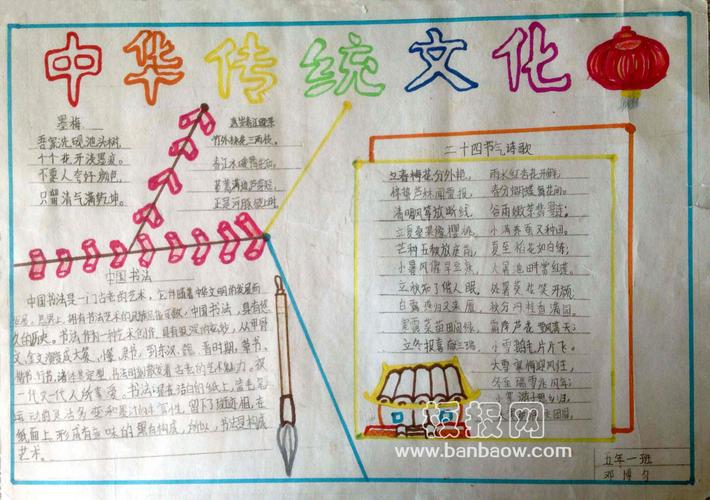 中华传统文化
墨梅
吾家洗砚池头树
个个花开淡墨痕。
不要人夸好颜色
只留清气满乾坤。
惠崇春江晚景
竹外桃花三两枝,
春江水暖鸭先知。
蒌蒿满地芦芽短,
正是河豚欲上时
中国书法
中国书法是一门古老的艺术,它伴随着中华文明的发展而
发展。世界上,拥有书法艺术的民族屈指可数,中国书法,具有悠
久的历史。书法作为一种艺术创作,具有
文、金文演变成大篆、小篆、隶书,到东汉、魏、晋时期,草书、
楷书、行书、诸体基定型,书法时刻散发着古老的艺术魅力。被
一代又一代人所喜爱。书法是在洁白的纸上,靠毛笔
运动的灵活多变和墨汁的丰富性,留下斑迹,在
纸面上形成有意味的黑白构成,所以,书法是构成
艺术。
二十四节气诗歌
立春梅花分外艳,雨水红杏花开鲜;
惊蛰芦林闻雷报,春分蝴蝶舞花间。
清明风筝放断线,谷雨嫩茶翡翠连;
立夏桑果像樱桃,小满养蚕又种田。
芒种玉秧放庭前,夏至稻花如白练;
小暑风催早豆熟,大暑池畔赏红莲。
立秋知了催人眠,处暑葵花笑开颜
白露燕归又来雁,秋分丹桂香满园。
寒露菜苗田间绿,霜降芦花飘满天;
立冬报喜献三瑞,小雪鹅毛片片飞。
大雪寒梅迎风狂,
冬至瑞雪兆丰年;
小寒游子思乡归,
大寒岁底庆团圆。
短报网
www.banbaow.com
五年一班